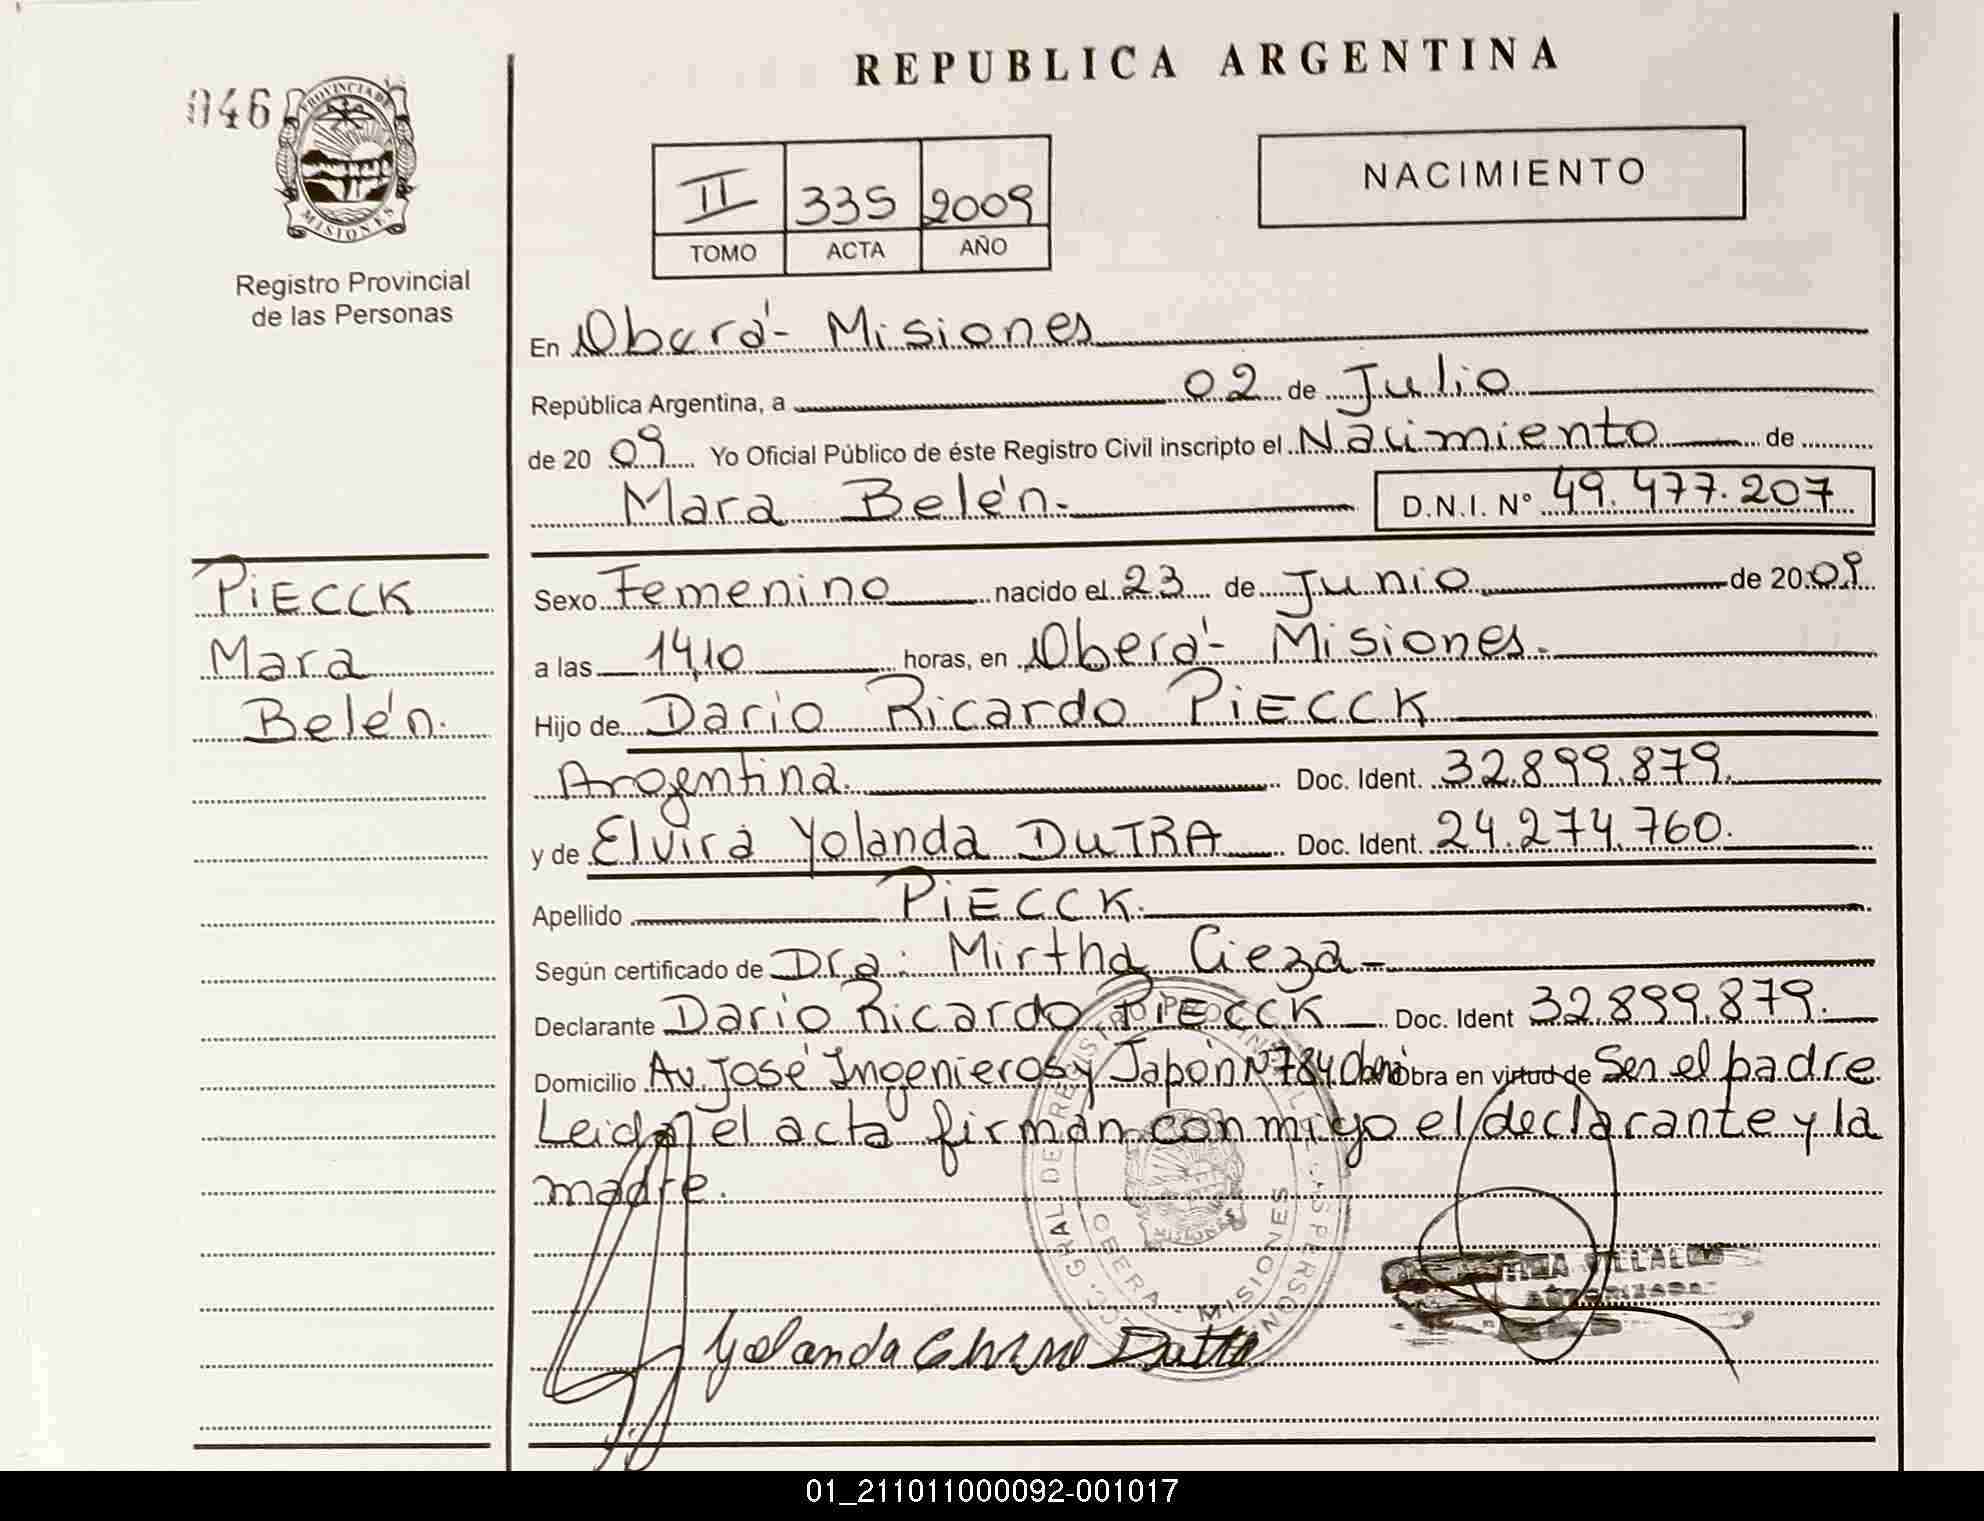 REPUBLICA ARGENTINA
046
PROVINCIA DE
MISIONES
Registro Provincial
de las Personas
II 335 2009
TOMO ACTA AÑO
NACIMIENTO
En Oberá - Misiones
República Argentina, a 02 de Julio
de 2009 Yo Oficial Público de éste Registro Civil inscripto el Nacimiento de
Mara Belén.- D.N.I. N° 49.477.207
PiECCK
Mara
Belén.
Sexo Femenino nacido el 23 de Junio de 2009
a las 14,10 horas, en Oberá - Misiones.-
Hijo de Dario Ricardo PiECCK
Argentina. Doc. Ident. 32.899.879.
y de Elvira Yolanda DuTRA Doc. Ident. 24.274.760.
Apellido PiECCK.
Según certificado de Dra. Mirtha Cieza -
Declarante Dario Ricardo PiECCK Doc. Ident 32.899.879.
Domicilio Av. José Ingenieros y Japón N°784 Obra en virtud de Ser el padre
Leida el acta firman conmigo el declarante y la
madre.
OBERA - MISIONES
Yolanda Dutra
01_211011000092-001017